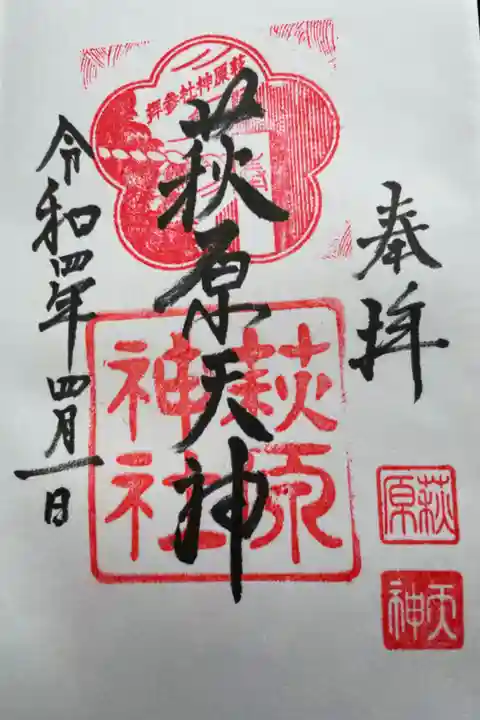 奉拝
萩原
天神
萩原神社参拝
萩原天神
萩原
神社
令和四年四月一日